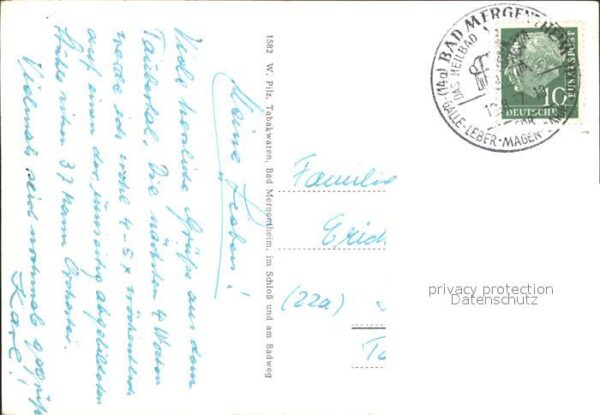 Meine Lieben!
Viele herzliche Grüße aus dem
Taubertal. Die nächsten 4 Wochen
werde ich wohl 4-5 x wöchentlich
auf einem der umseitig abgebildeten
Stühle sitzen 37 Mann Orchester.
Vielmals seid nochmals gegrüßt
Karl!
1582 W. Pilz, Tabakwaren, Bad Mergentheim, im Schloß und am Badweg
(14a) BAD MERGENTHEIM
DAS HEILBAD
GALLE-LEBER-MAGEN-
10
DEUTSCHE
BUNDESPOST
Familie
Erich
(22a)
privacy protection
Datenschutz